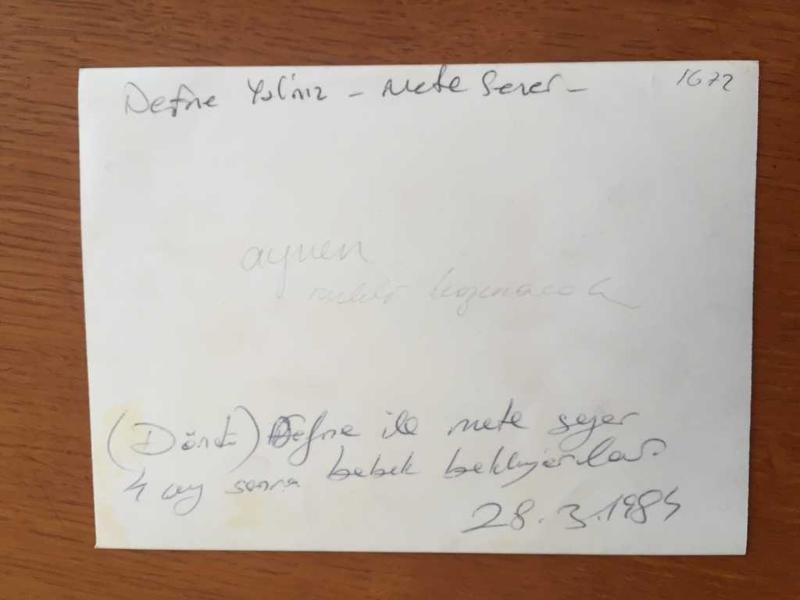 Defne Yalnız - Mete Sezer -
1672
aynen
(Döndü) Defne ile mete sezer
4 ay sonra bebek bekliyorlar.
28.3.1984